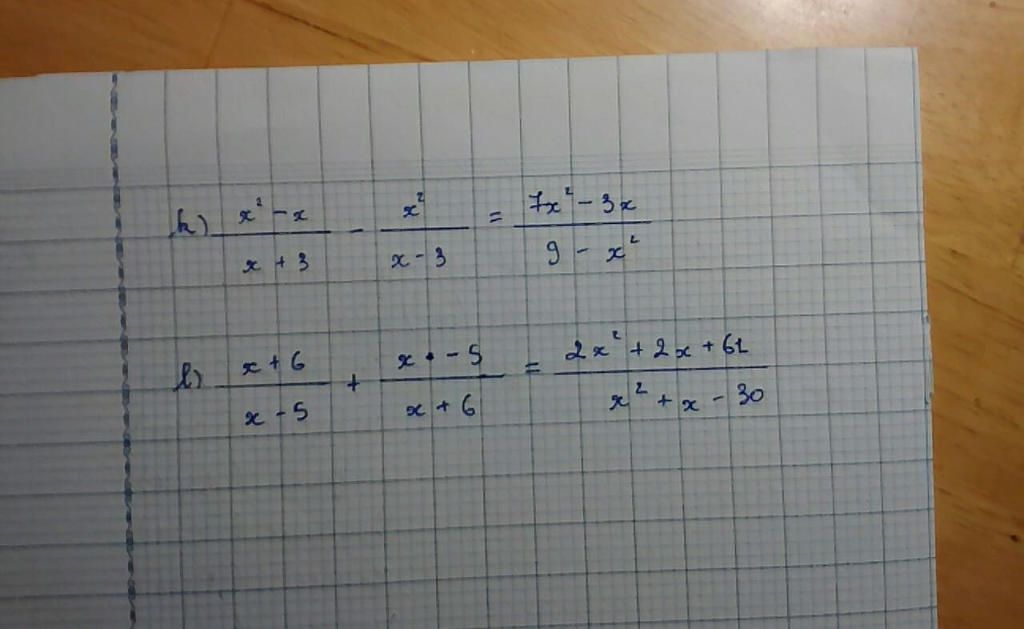 k) (x² - x)/(x + 3) - x²/(x - 3) = (7x² - 3x)/(9 - x²)
l) (x + 6)/(x - 5) + (x - 5)/(x + 6) = (2x² + 2x + 61)/(x² + x - 30)